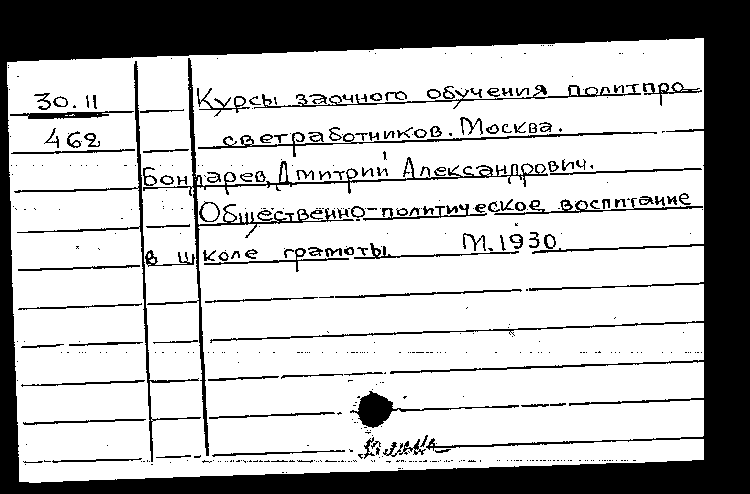 30.11
Курсы заочного обучения политпро-
462
светработников. Москва.
Бондарев, Дмитрий Александрович.
Общественно-политическое воспитание
в школе грамоты. М. 1930.